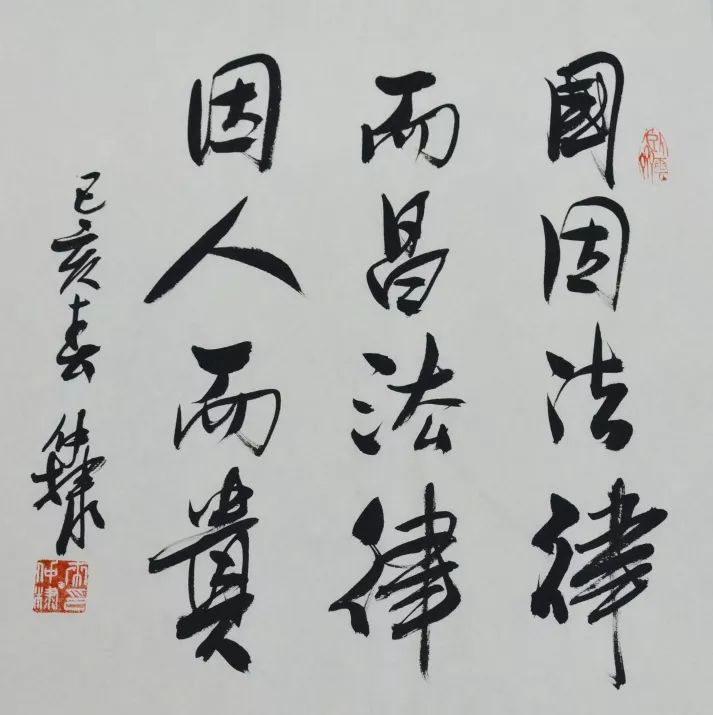 國因法律
而昌法律
因人而貴
己亥春 仲